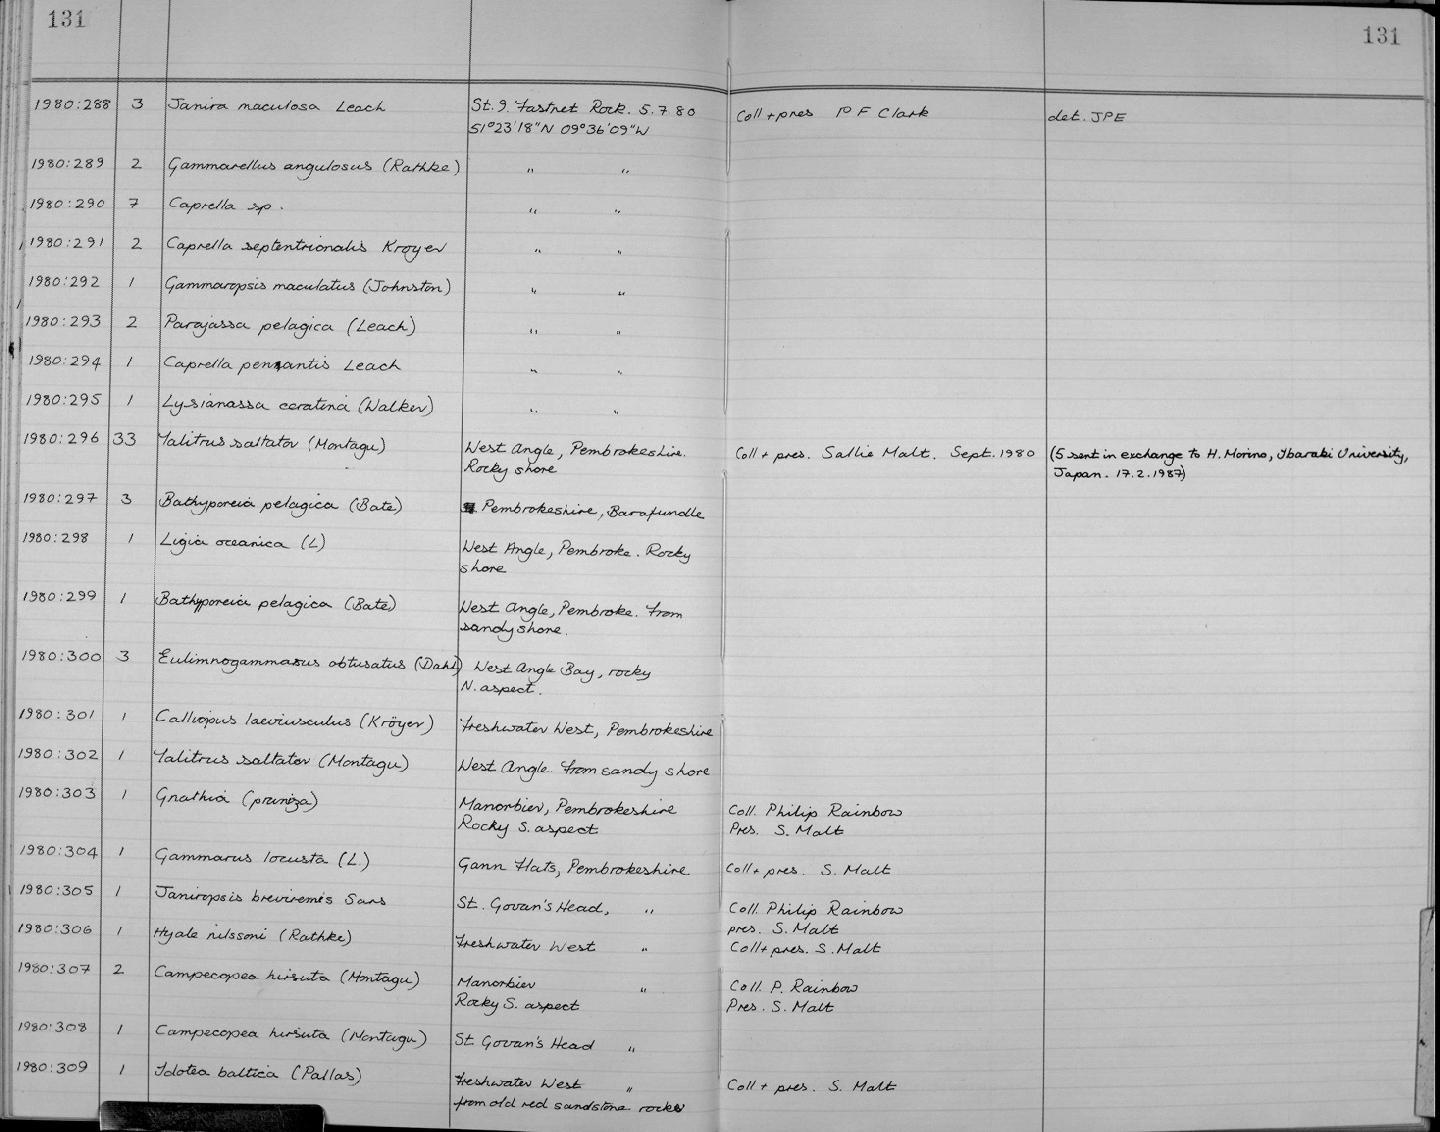 131 131
1980:288 3 Janira maculosa Leach St. 9. Fastnet Rock. 5.7 80 Coll + pres P F Clark det. JPE
51°23'18"N 09°36'09"W
1980:289 2 Gammarellus angulosus (Rathke) " "
1980:290 7 Caprella sp. " "
1980:291 2 Caprella septentrionalis Kroyer " "
1980:292 1 Gammaropsis maculatus (Johnston) " "
1980:293 2 Parajassa pelagica (Leach) " "
1980:294 1 Caprella pennantis Leach " "
1980:295 1 Lysianassa ceratina (Walker) " "
1980:296 33 Talitrus saltator (Montagu) West Angle, Pembrokeshire. Coll + pres. Sallie Malt. Sept. 1980 (5 sent in exchange to H. Morino, Ibaraki University,
Rocky shore Japan. 17.2.1987)
1980:297 3 Bathyporeia pelagica (Bate) Pembrokeshire, Barafundle
1980:298 1 Ligia oceanica (L) West Angle, Pembroke. Rocky
shore
1980:299 1 Bathyporeia pelagica (Bate) West Angle, Pembroke. From
sandy shore.
1980:300 3 Eulimnogammarus obtusatus (Dahl) West Angle Bay, rocky
N. aspect.
1980:301 1 Calliopus laeviusculus (Kröyer) Freshwater West, Pembrokeshire
1980:302 1 Talitrus saltator (Montagu) West Angle. From sandy shore
1980:303 1 Gnathia (praniza) Manorbier, Pembrokeshire Coll. Philip Rainbow
Rocky S. aspect Pres. S. Malt
1980:304 1 Gammarus locusta (L.) Gann Flats, Pembrokeshire Coll + pres. S. Malt
1980:305 1 Janiropsis breviremis Sars St. Govan's Head, " Coll. Philip Rainbow
pres. S. Malt
1980:306 1 Hyale nilssoni (Rathke) Freshwater West " Coll + pres. S. Malt
1980:307 2 Campecopea hirsuta (Montagu) Manorbier " Coll. P. Rainbow
Rocky S. aspect Pres. S. Malt
1980:308 1 Campecopea hirsuta (Montagu) St Govan's Head "
1980:309 1 Idotea baltica (Pallas) Freshwater West " Coll + pres. S. Malt
from old red sandstone rocks